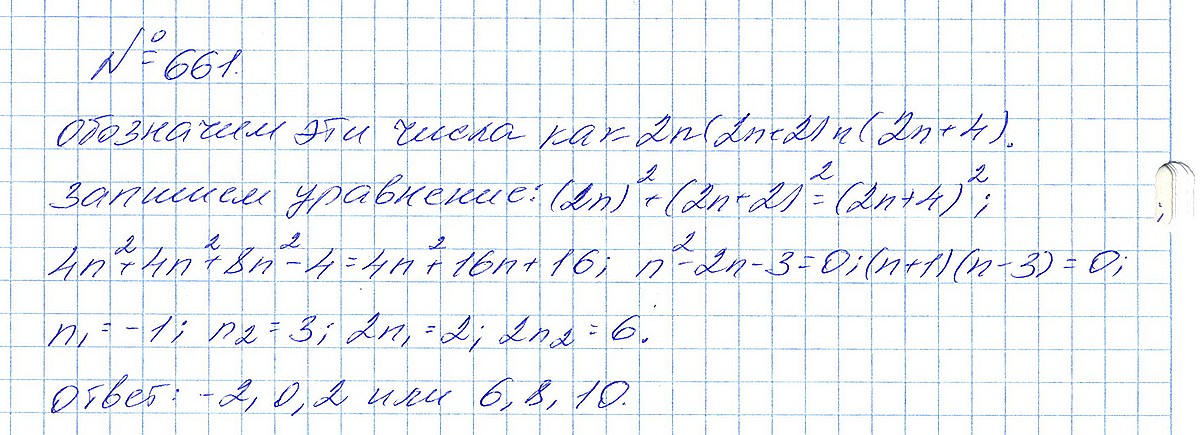 № 661.
Обозначим эти числа как 2n(2n+2)и(2n+4).
Запишем уравнение: (2n)²+(2n+2)²=(2n+4)²;
4n²+4n²+8n²-4=4n²+16n+16; n²-2n-3=0;(n+1)(n-3)=0;
n₁=-1; n₂=3; 2n₁=2; 2n₂=6.
Ответ: -2, 0, 2 или 6, 8, 10.